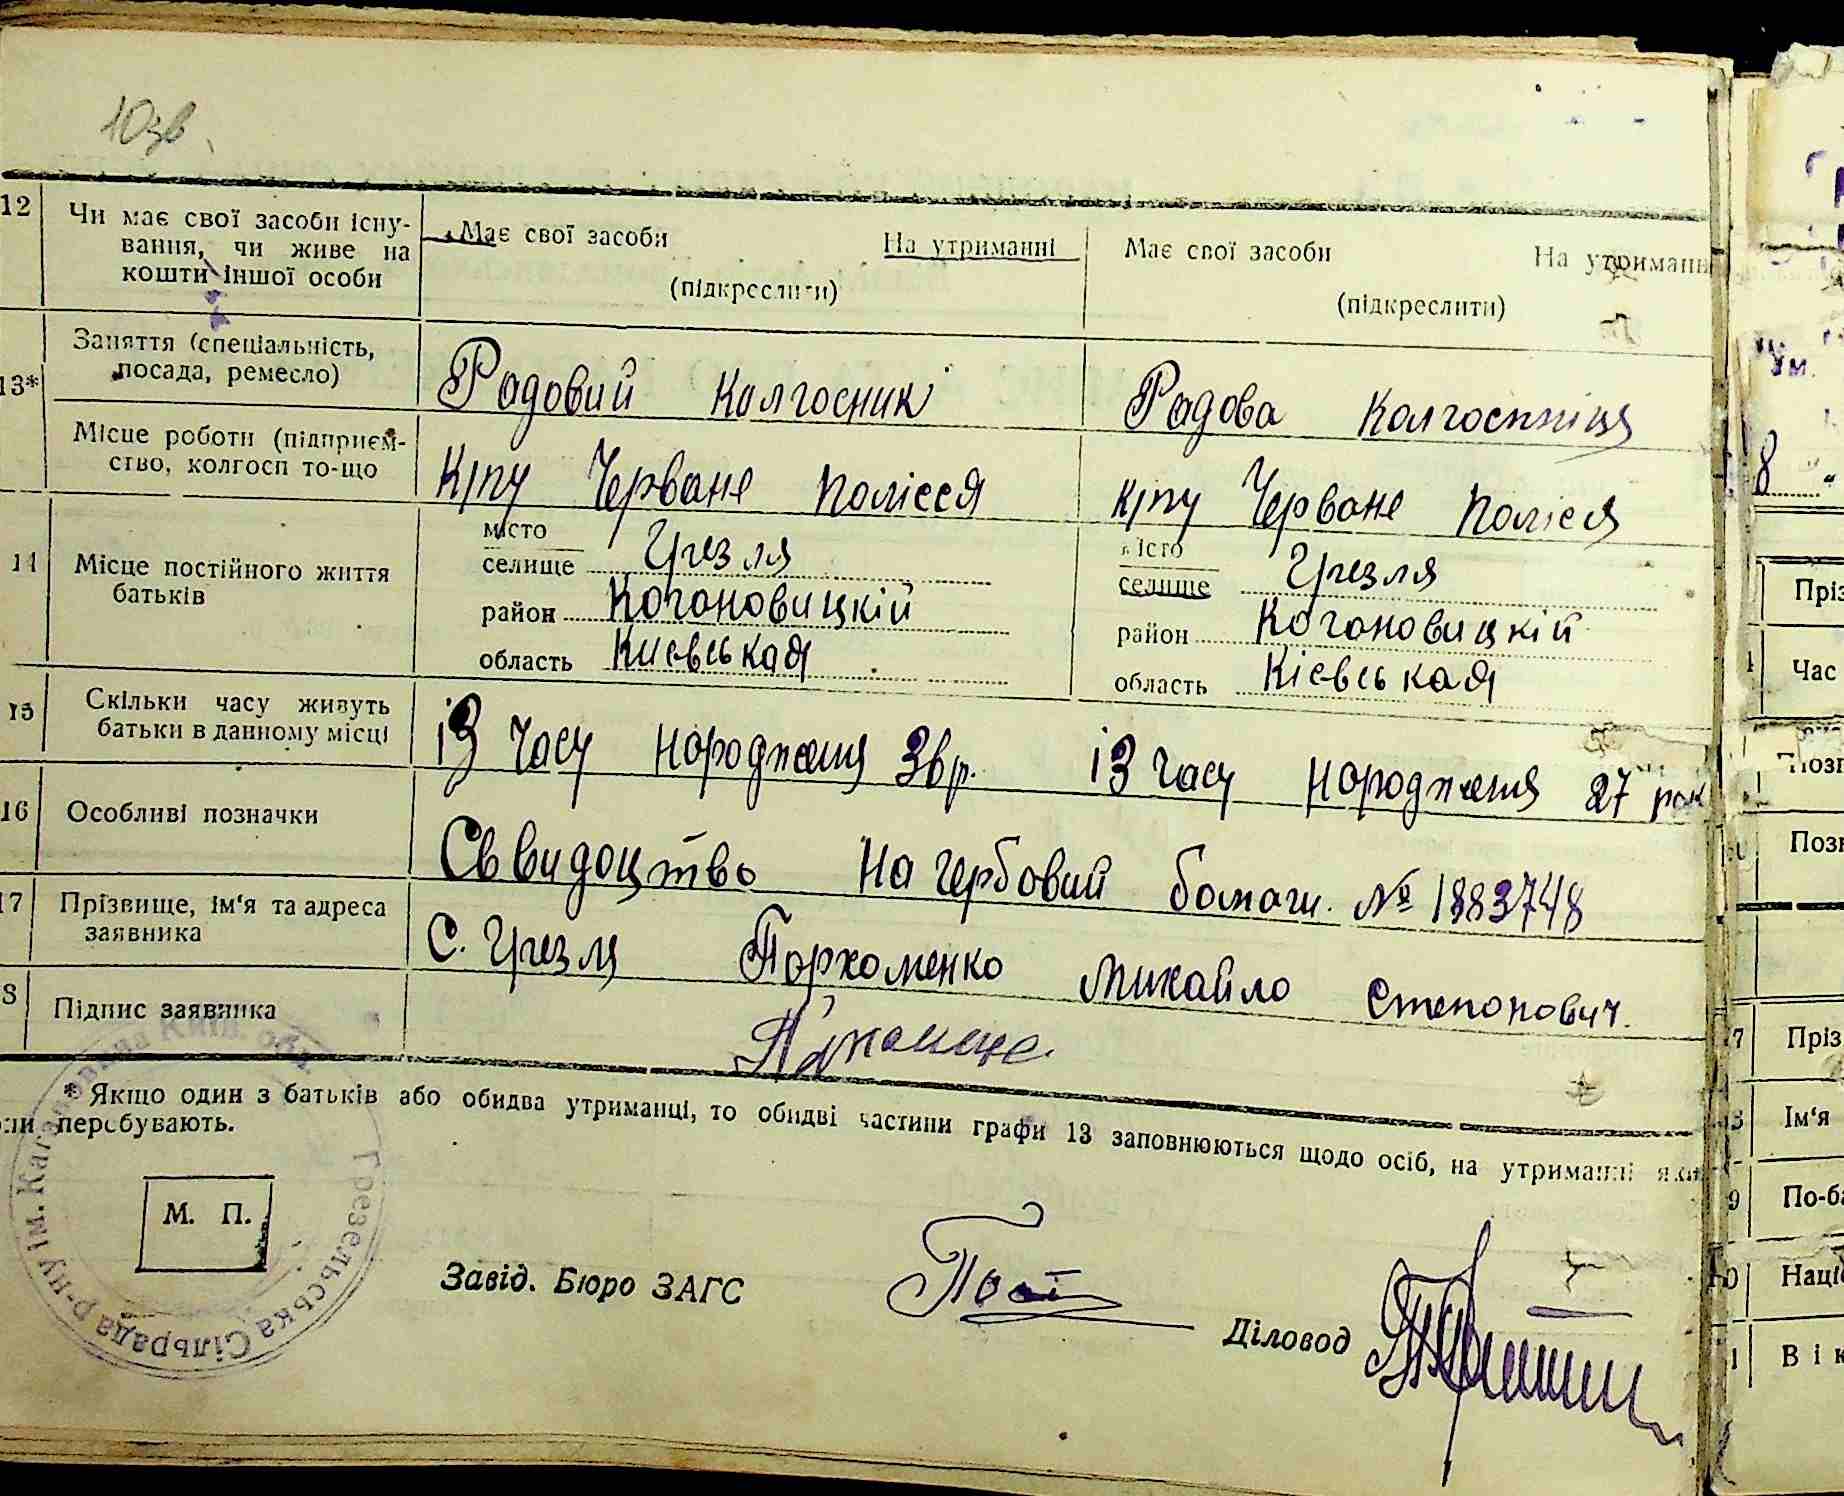 10зв.
12 Чи має свої засоби існу-
вання, чи живе на
кошти іншої особи
Має свої засоби На утриманні
(підкреслити)
Має свої засоби На утриманн
(підкреслити)
13* Заняття (спеціальність,
посада, ремесло)
Радовий Колгосник
Радова Колгоспниця
Місце роботи (підприєм-
ство, колгосп то-що
К/пу Черване Полісся
К/пу Черване Полісся
14 Місце постійного життя
батьків
місто
селище Грезля
район Когоновицкій
область Киевськая
місто
селище Грезля
район Когоновицкій
область Кіевськая
15 Скільки часу живуть
батьки в данному місці
із часу народженя
із часу народженя 27 рок
16 Особливі позначки
Сввидоцтво на гербовий бомаги. № 1883748
17 Прізвище, ім‘я та адреса
заявника
С. Грезля Пархоменко Михайло Степонович.
8 Підпис заявника
* Якщо один з батьків або обидва утриманці, то обидві частини графи 13 заповнюються щодо осіб, на утриманні яки
перебувають.
М. П.
Грезельська Сільрада р-ну ім. Кагановича Київ. обл.
Завід. Бюро ЗАГС
Діловод
8
Пріз
Час
Позн
7 Пріз
Ім‘я
9 По-ба
Наці
Вік